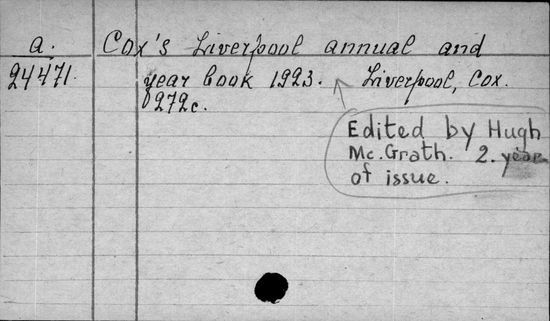 a. Cox's Liverpool annual and
24471. year book 1923. Liverpool, Cox.
272c.
Edited by Hugh
Mc. Grath. 2. year
of issue.